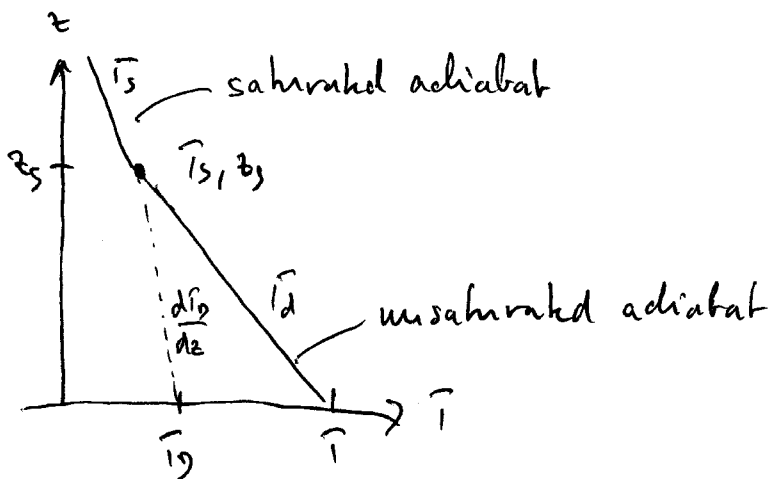 z
Γs
saturated adiabat
zs
Ts, zs
Γd
dTD
dz
unsaturated adiabat
T
TD
T